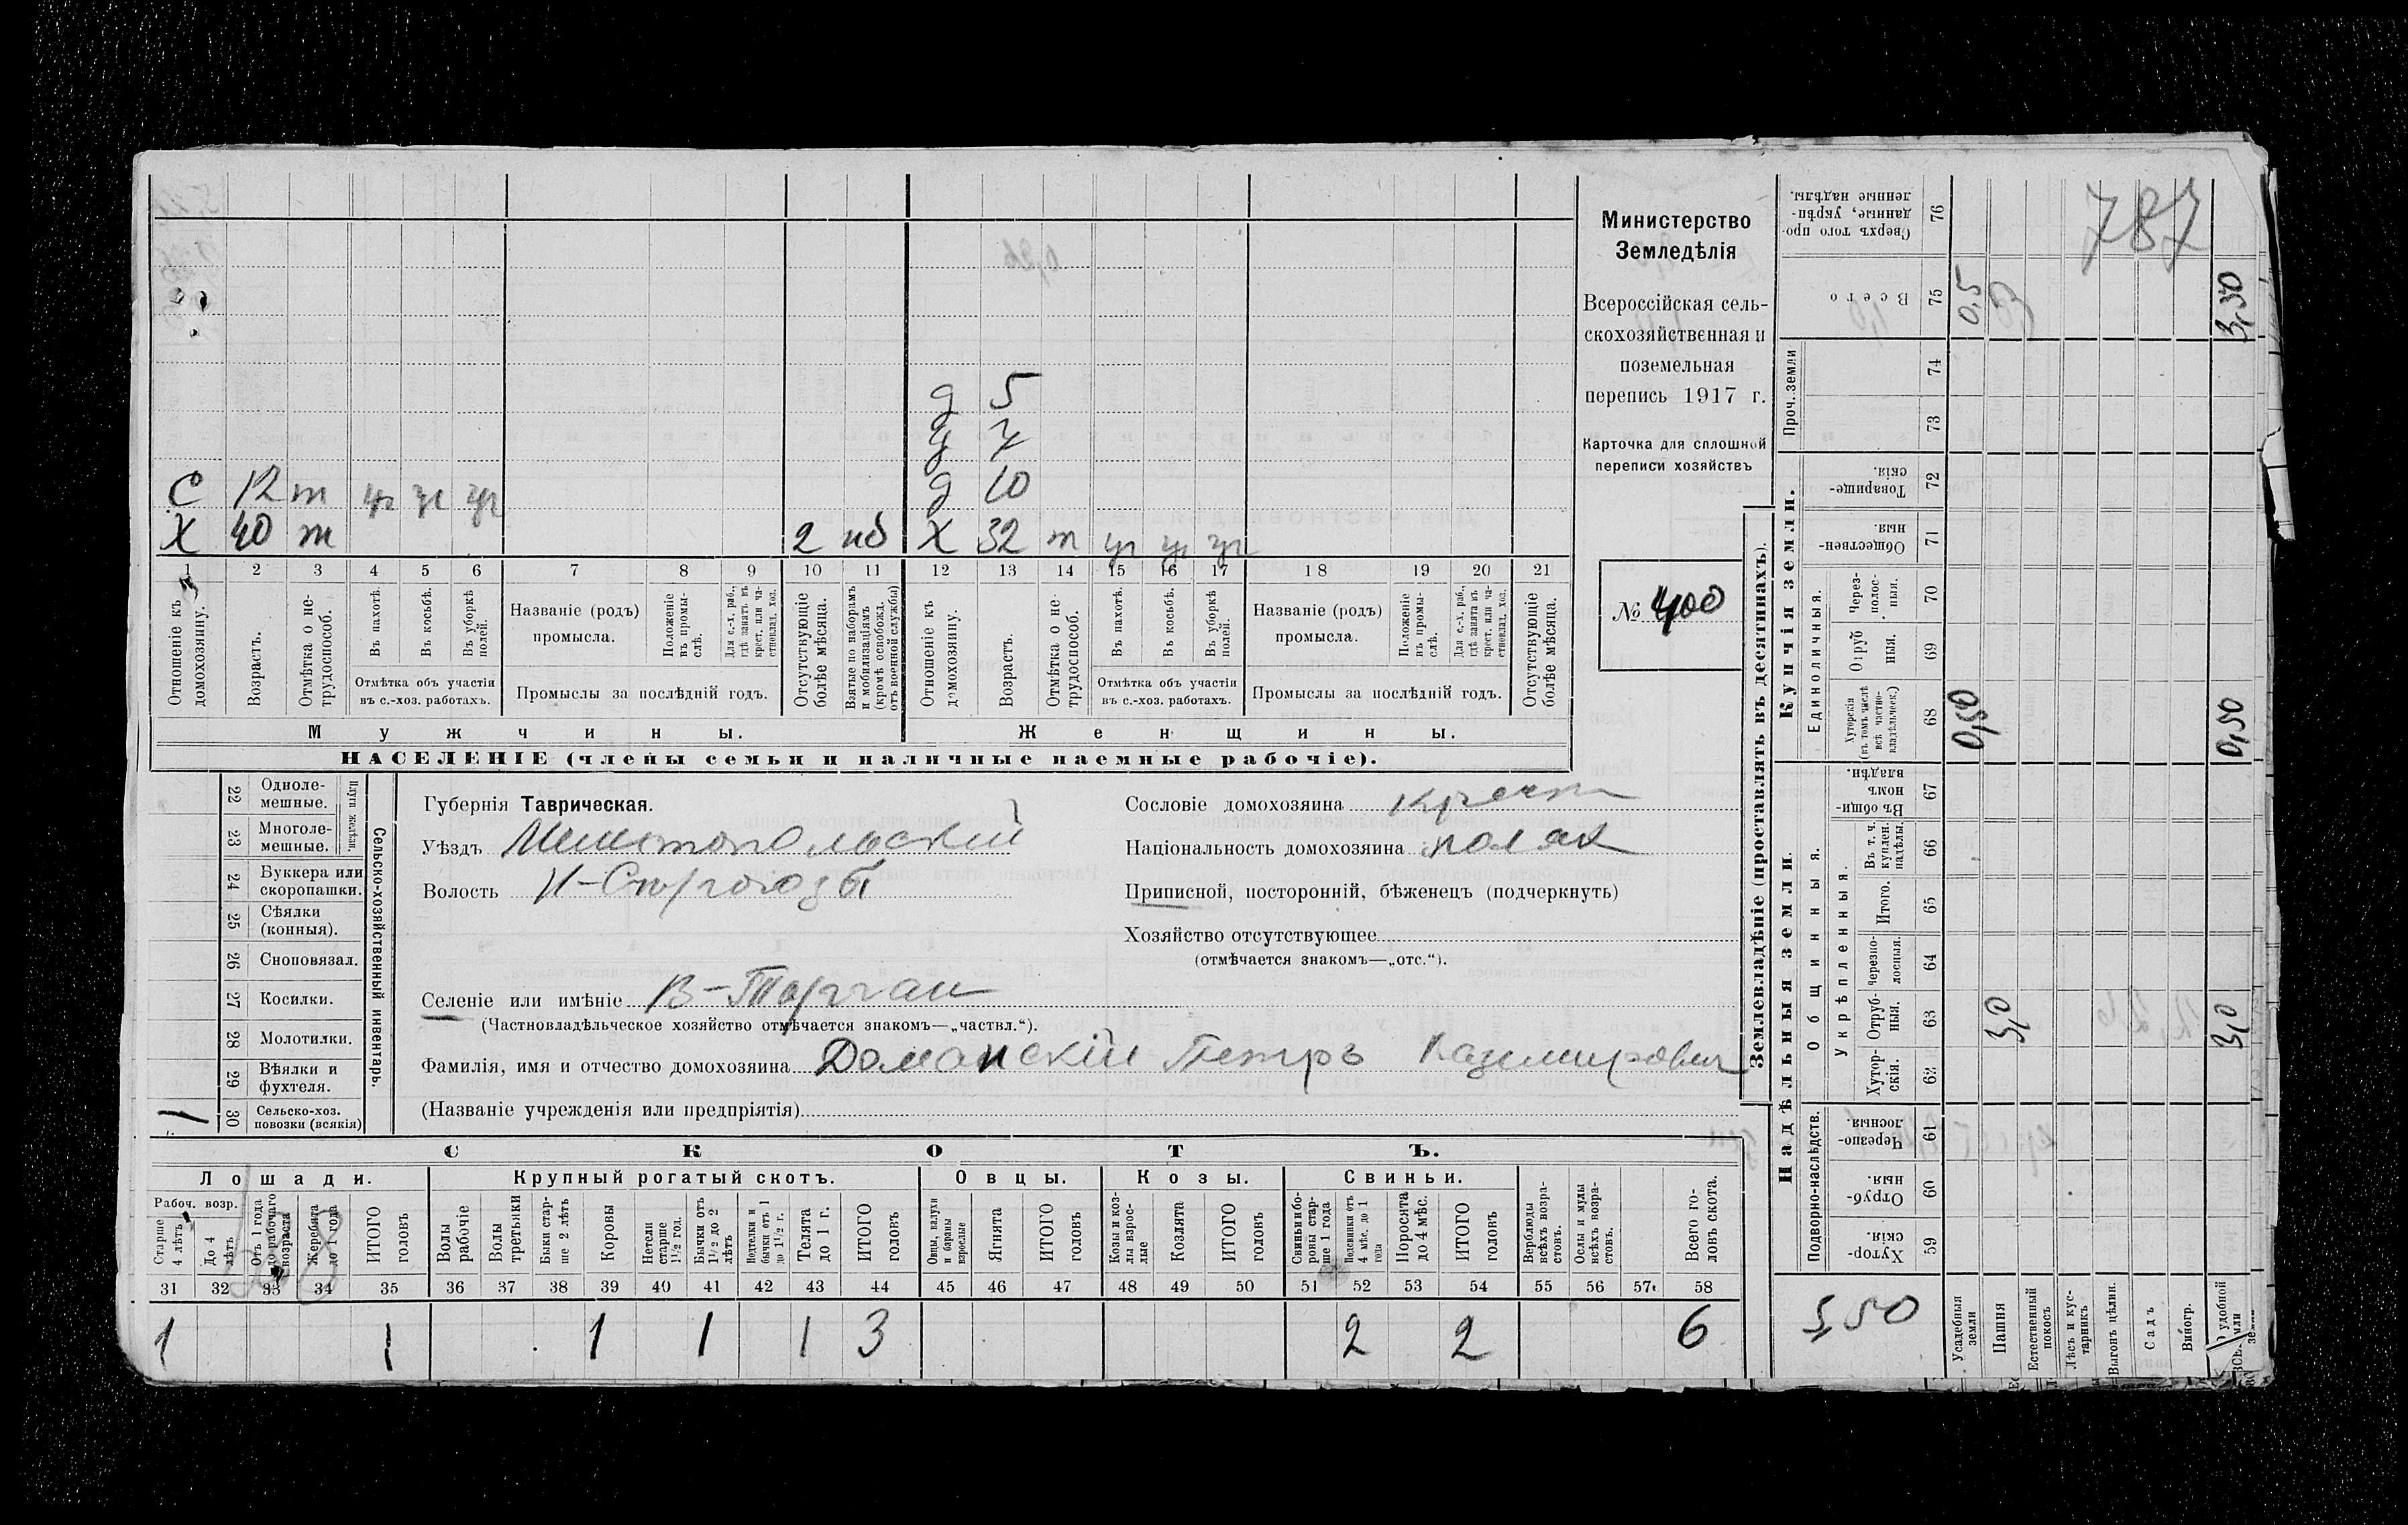 Министерство
Земледѣлія
Всероссійская сель-
скохозяйственная и
поземельная
перепись 1917 г.
Карточка для сплошной
переписи хозяйствъ
№ 400
787
д 5
д 7
С 12 т уч уч уч д 10
Х 40 т 2 нб Х 32 т уч уч уч
1 2 3 4 5 6 7 8 9 10 11 12 13 14 15 16 17 18 19 20 21
Отношеніе къ домохозяину.
Возрастъ.
Отмѣтка о не-трудоспособ.
Въ пахотѣ.
Въ косьбѣ.
Въ уборкѣ полей.
Отмѣтка объ участіи
въ с.-хоз. работахъ.
Названіе (родъ)
промысла.
Положеніе въ промы-слѣ.
Для с.-х. раб., гдѣ занятъ въ крест. или ча-стновлад. хоз.
Промыслы за послѣдній годъ.
Отсутствующіе болѣе мѣсяца.
Взятые по наборамъ и мобилизаціямъ (кромѣ освобожд. отъ военной службы)
Отношеніе къ домохозяину.
Возрастъ.
Отмѣтка о не-трудоспособ.
Въ пахотѣ.
Въ косьбѣ.
Въ уборкѣ полей.
Отмѣтка объ участіи
въ с.-хоз. работахъ.
Названіе (родъ)
промысла.
Положеніе въ промы-слѣ.
Для с.-х. раб., гдѣ занята въ крест. или ча-стновлад. хоз.
Промыслы за послѣдній годъ.
Отсутствующіе болѣе мѣсяца.
Мужчины. Женщины.
НАСЕЛЕНІЕ (члены семьи и наличные наемные рабочіе).
22 Одноле-мешные.
23 Многоле-мешные.
Плуги желѣзн.
24 Буккера или скоропашки.
25 Сѣялки (конныя).
26 Сноповязал.
27 Косилки.
28 Молотилки.
29 Вѣялки и фухтеля.
1 30 Сельско-хоз. повозки (всякія)
Сельско-хозяйственный инвентарь.
Губернія Таврическая.
Уѣздъ Мелитопольскій
Волость
Сословіе домохозяина крест
Національность домохозяина поляк
Приписной, посторонній, бѣженецъ (подчеркнуть)
Хозяйство отсутствующее
(отмѣчается знакомъ—„отс.“).
Селеніе или имѣніе В-Торгаи
(Частновладѣльческое хозяйство отмѣчается знакомъ—„частвл.“).
Фамилія, имя и отчество домохозяина Доманскій Петръ Казимирович
(Названіе учрежденія или предпріятія)
СКОТЪ.
Лошади. Крупный рогатый скотъ. Овцы. Козы. Свиньи.
Рабоч. возр.
Старше 4 лѣтъ
До 4 лѣтъ
Отъ 1 года до рабочаго возраста
Жеребята до 1 года
ИТОГО головъ
Волы рабочіе
Волы третьяки
Быки стар-ше 2 лѣтъ
Коровы
Нетели старше 1½ год.
Бычки отъ 1½ до 2 лѣтъ
Подтелки и бычки отъ 1 до 1½ г.
Телята до 1 г.
ИТОГО головъ
Овцы, валухи и бараны взрослые
Ягнята
ИТОГО головъ
Козы и коз-лы взрос-лые
Козлята
ИТОГО головъ
Свиньи и бо-ровы стар-ше 1 года
Подсвинки отъ 4 мѣс. до 1 года
Поросята до 4 мѣс.
ИТОГО головъ
Верблюды всѣхъ возра-стовъ.
Ослы и мулы всѣхъ возра-стовъ.
Всего го-ловъ скота.
31 32 33 34 35 36 37 38 39 40 41 42 43 44 45 46 47 48 49 50 51 52 53 54 55 56 57 58
1 1 1 1 1 3 2 2 6
Землевладѣніе (проставлять въ десятинахъ).
Надѣльныя земли.
Купчія земли.
Проч. земли
Подворно-наслѣдств.
Общинныя.
Укрѣпленныя.
Единоличныя.
Хутор-скія. 59
Отруб-ныя. 60
Черезпо-лосныя. 61
Хутор-скія. 62
Отруб-ныя. 63
Черезпо-лосныя. 64
Итого. 65
Въ т. ч. куплен. надѣлы. 66
Въ общи-номъ владѣн. 67
Хуторскія (въ томъ числѣ всѣ частно-владѣльческ.) 68
Отруб ныя. 69
Через-полос-ныя. 70
Обществен-ныя. 71
Товарище-скія. 72
73
74
Всего 75
Сверхъ того про-данные, укрѣп-ленные надѣлы. 76
3,50
Усадебныя земли 0,50 0,5
Пашня 3,0
Естественный покосъ
Лѣсъ и кус-тарникъ
Выгонъ цѣлин.
Садъ
Виногр.
удобной 3,0 0,50 3,50